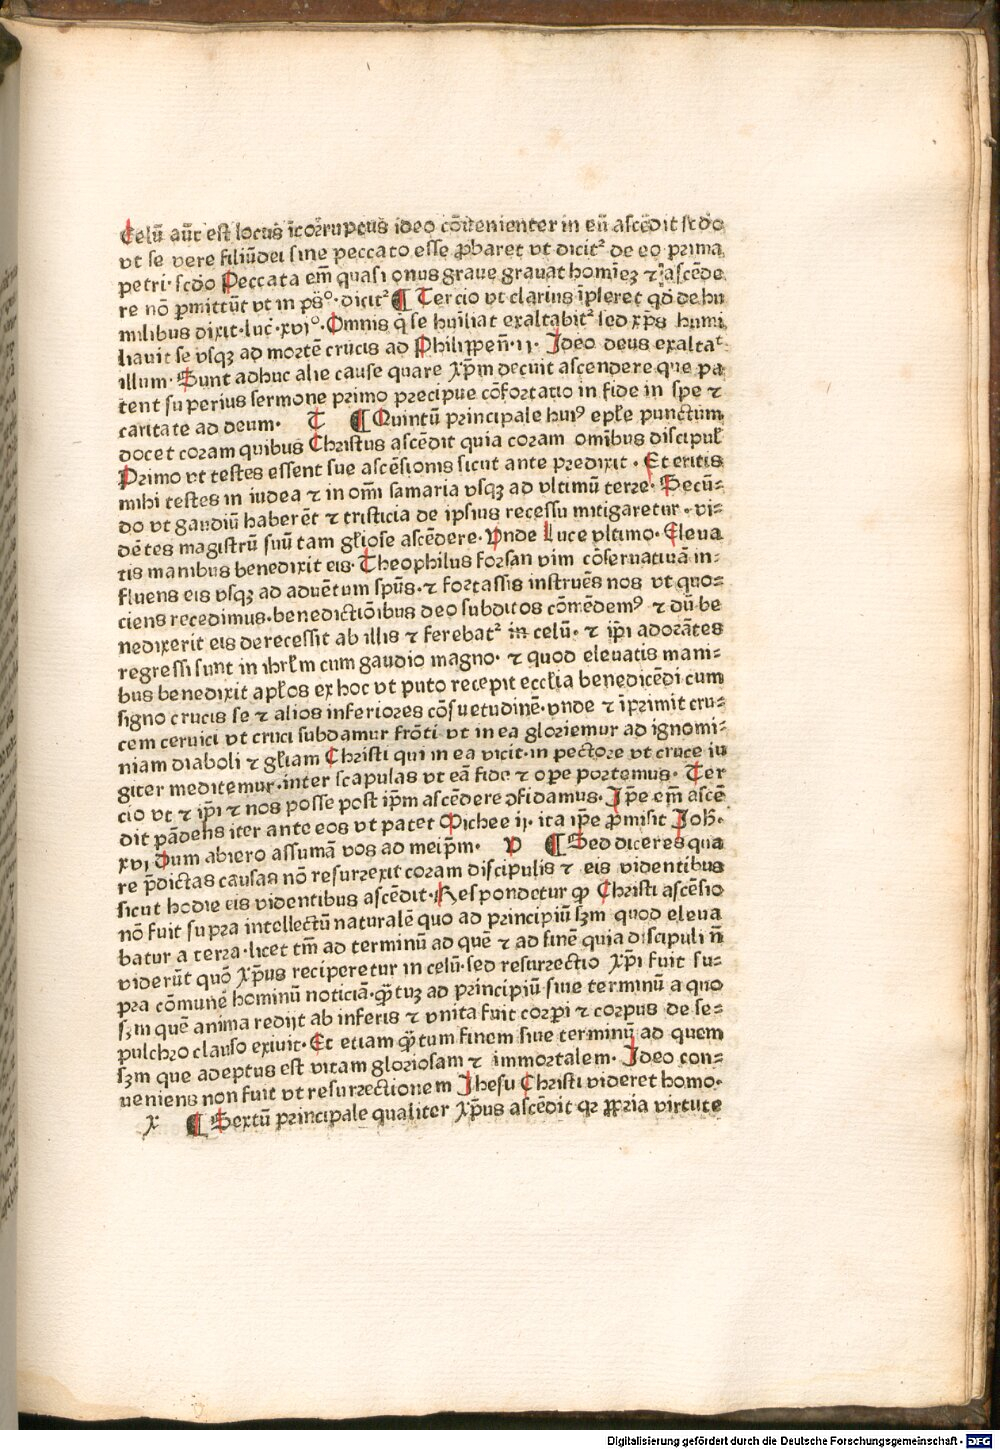 Celū aūt est locus īcorruptus ideo cōvenienter in eū ascēdit scdo
vt se vere filiūdei sine peccato esse ꝓbaret vt dicit² de eo prima
petri· scdo Peccata em̄ quasi onus graue grauat homieꝫ ⁊ ascēde
re nō ꝑmittūt vt in pso·dicit² ¶ Tercio vt clarius īpleret qd de hu
milibus dixit·luc·xvjo·Omnis q̄ se huīliat exaltabit² sed xp̄s humi
liauit se vsqꝫ ad mortē crucis ad Philippen̄·ij· Jdeo deus exaltat
illum· Sunt adhuc alie cause quare xp̄m decuit ascendere que pa
tent superius sermone primo precipue cōfortatio in fide in spe ⁊
caritate ad deum· T ¶ Quintū principale huiꝰ ep̄le punctum
docet coram quibus Christus ascēdit quia coram omībus discipul̄
Primo vt testes essent sue ascēsionis sicut ante predixit · Et eritis
mihi testes in iudea ⁊ in om̄i samaria vsqꝫ ad vltimū terre· Secū=
do vt gaudiū haberēt ⁊ tristicia de ipsius recessu mitigaretur · vi=
dētes magistrū suū tam gl̄iose ascēdere· Vnde Luce vltimo· Eleua
tis manibus benedixit eis· Theophilus forsan vim cōseruatiuā in=
fluens eis vsqꝫ ad aduētum spūs·⁊ fortassis instruēs nos vt quo=
ciens recedimus·benedictiōibus deo subditos cōmēdemꝰ ⁊ dū be
nedixerit eis derecessit ab illis ⁊ ferebat² in celū· ⁊ ip̄i adorātes
regressi sunt in ihrl̄m cum gaudio magno· ⁊ quod eleuatis mani=
bus benedixit apl̄os ex hoc vt puto recepit eccl̄ia benedicēdi cum
signo crucis se ⁊ alios inferiores cōsuetudinē·vnde ⁊ īprimit cru=
cem ceruici vt cruci subdamur frōti vt in ea gloriemur ad ignomi=
niam diaboli ⁊ gl̄iam Christi qui in ea vicit·in pectore vt cruce iu
giter meditemur·inter scapulas vt eā fide ⁊ oꝑe portemus· Ter
cio vt ⁊ ip̄i ⁊ nos posse post ip̄m ascēdere ꝯfidamus· Jp̄e em̄ ascē
dit pādens iter ante eos vt patet Michee ij· ita ip̄e ꝓmisit Joh̄·
xvj Dum abiero assumā vos ad meip̄m· V ¶ Sed diceres qua
re p̄dictas causas nō resurrexit coram discipulis ⁊ eis videntibus
sicut hodie eis videntibus ascēdit· Respondetur ꝙ Christi ascēsio
nō fuit supra intellectū naturalē quo ad principiū sꝫm quod eleua
batur a terra·licet tm̄ ad terminū ad quē ⁊ ad finē quia discipuli n̄
viderūt quō xp̄us reciperetur in celū·sed resurrectio xp̄i fuit su=
pra cōmunē hominū noticiā·ꝙ̄tuꝫ ad principiū siue terminū a quo
sꝫm quē anima redijt ab inferis ⁊ vnita fuit corꝑi ⁊ corpus de se=
pulchro clauso exiuit· Et etiam ꝙ̄tum finem siue terminū ad quem
sꝫm que adeptus est vitam gloriosam ⁊ immortalem· Jdeo con=
ueniens non fuit vt resurrectionem Jhesu Christi videret homo·
x ¶ Sextū principale qualiter xp̄us ascēdit qꝛ ꝓpria virtute
Digitalisierung gefördert durch die Deutsche Forschungsgemeinschaft - DFG